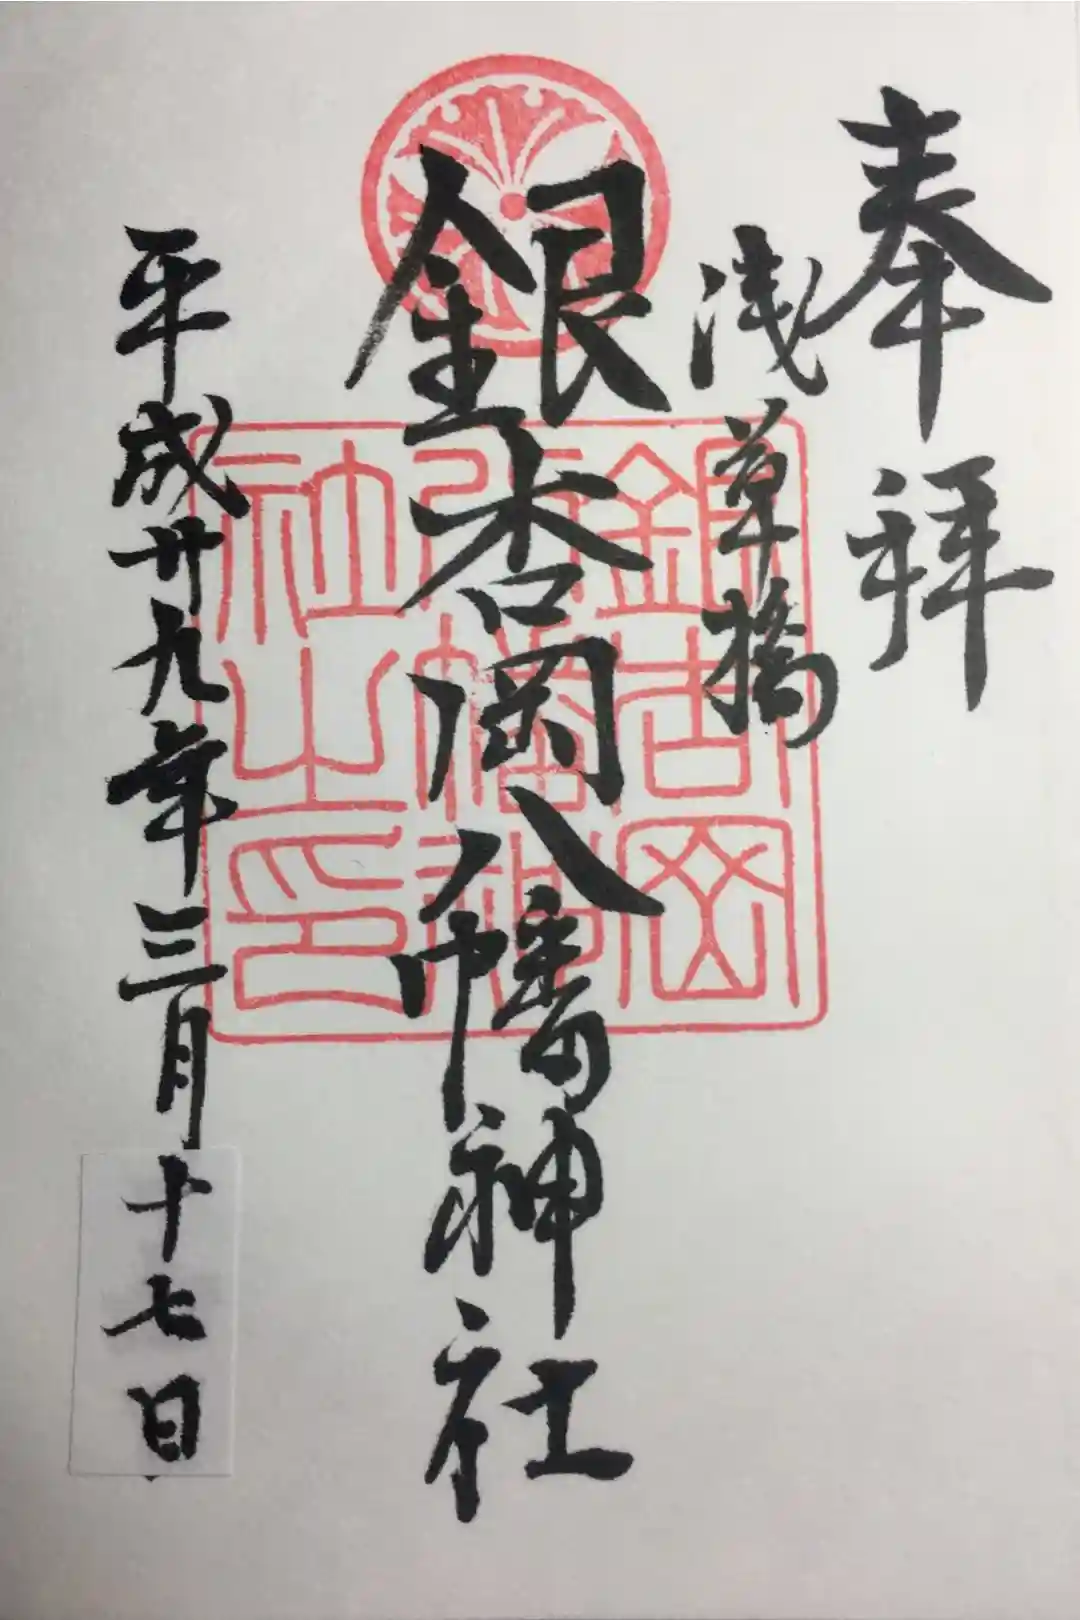 奉拝
浅草橋
銀杏岡八幡神社
銀杏岡
八幡神
社之印
平成廿九年三月十七日